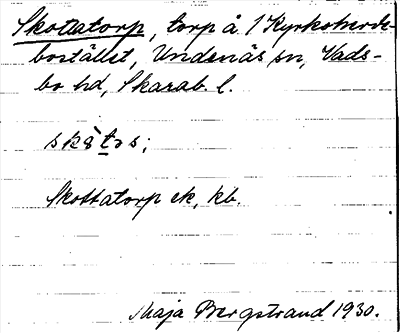 Skottatorp, torp å 1 Kyrkoherde-
bostället, Undenäs sn, Vads-
bo hd, Skarab. l.
Skottatorp ek, kb.
Maja Bergstrand 1930.